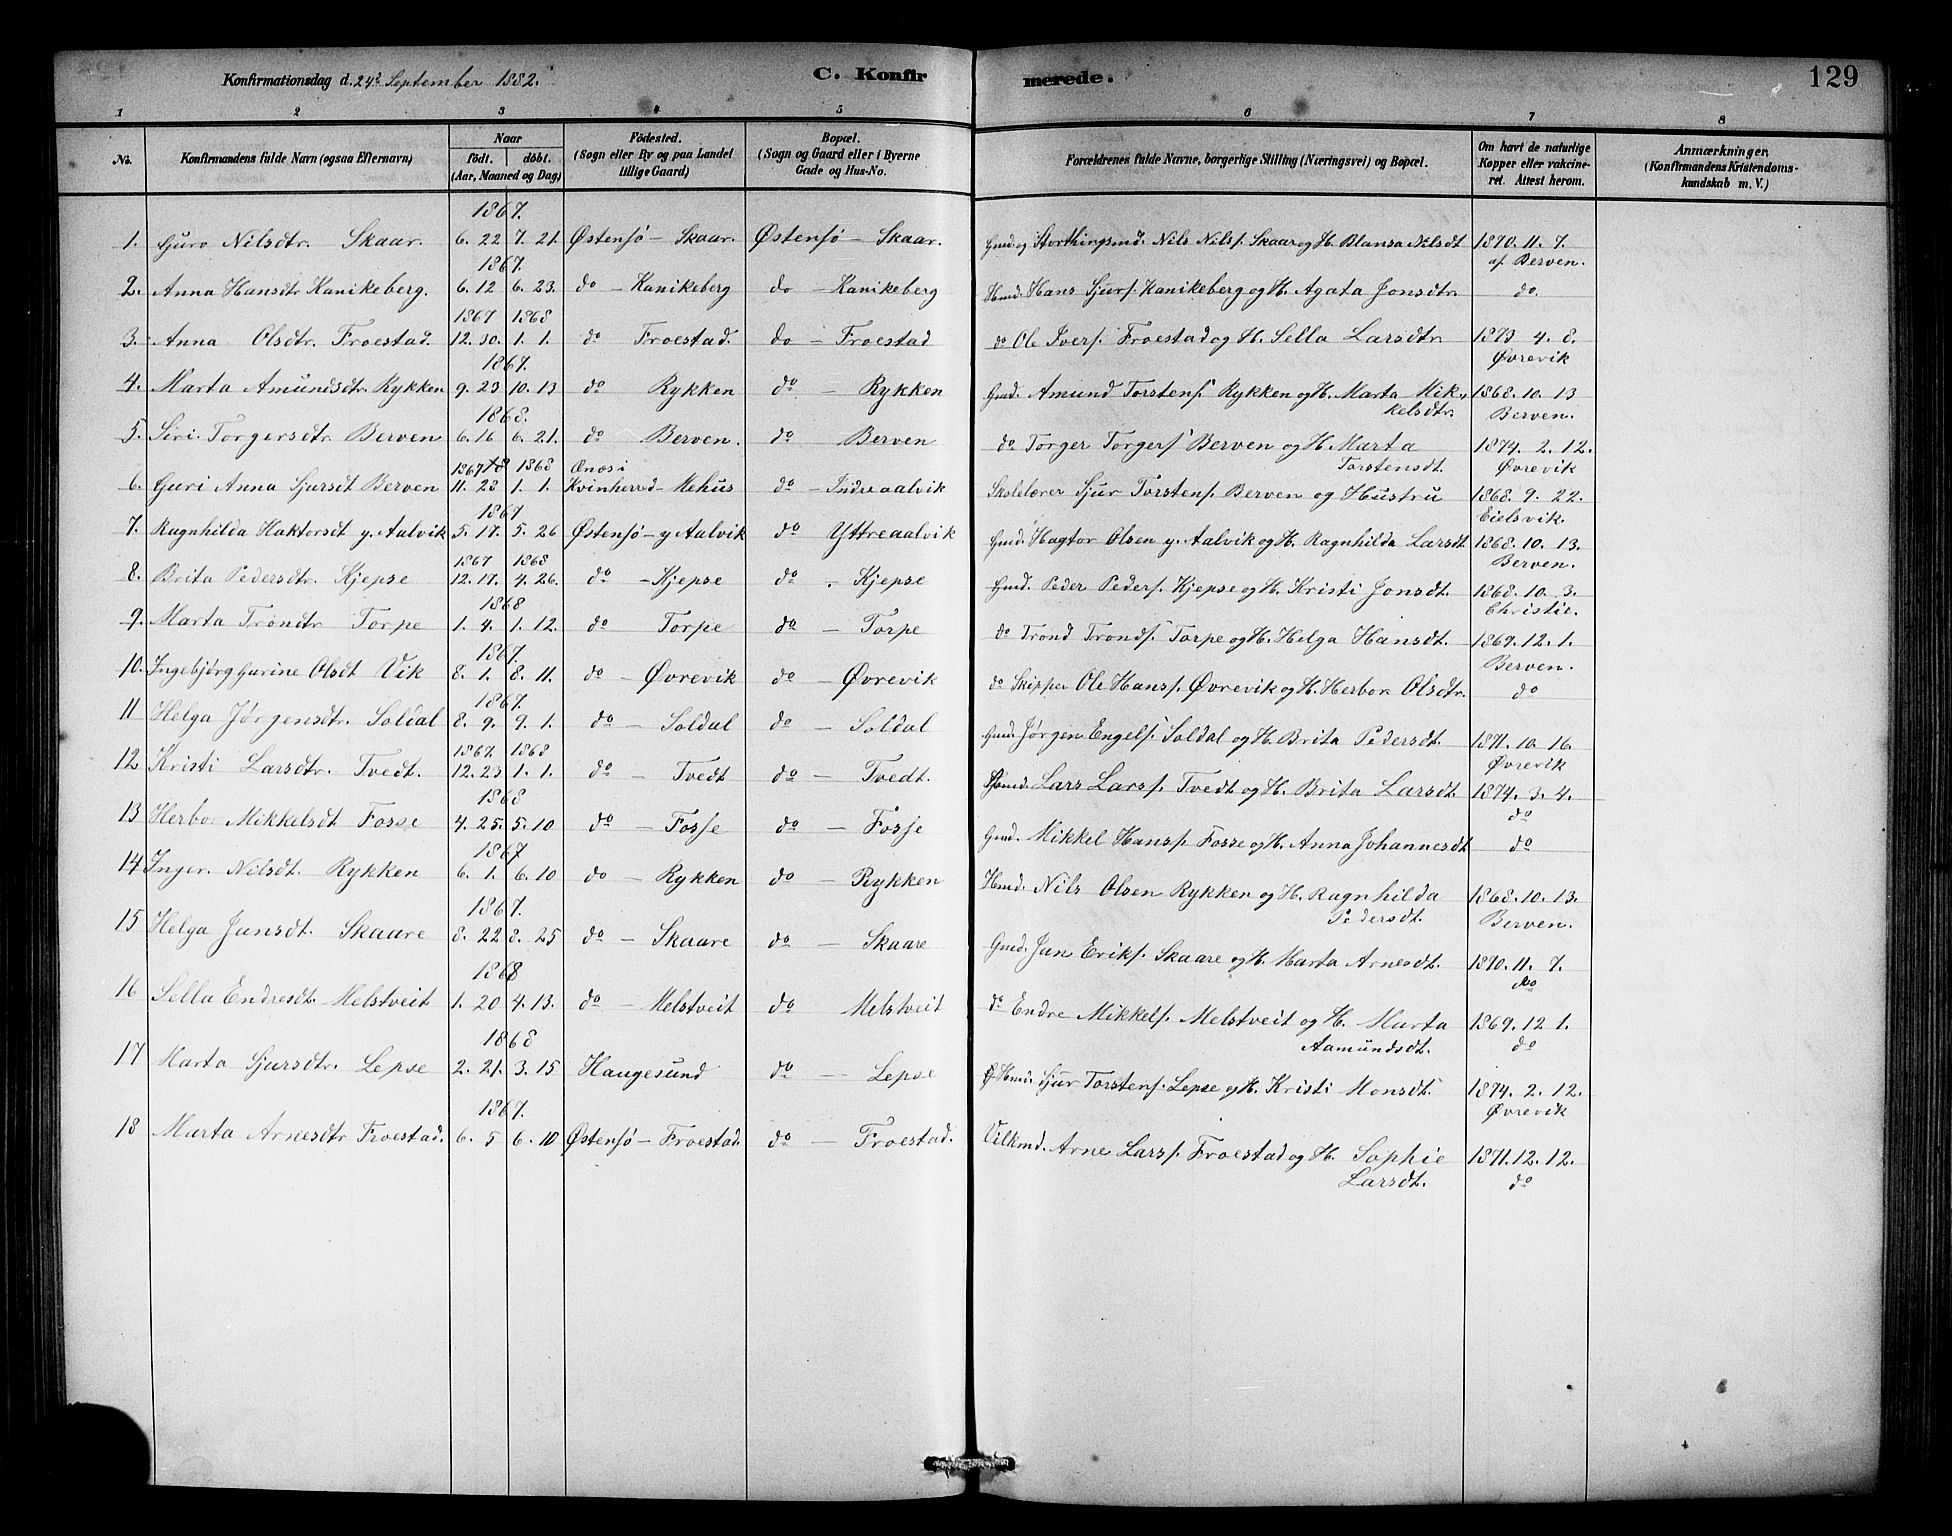 Konfirmationsdag d. 24de September 1882.
C. Konfirmerede.
129
1 2 3 4 5 6 7 8
No.
Konfirmandens fulde Navn (ogsaa Efternavn)
Naar
födt. döbt.
(Aar, Maaned og Dag)
Födested.
(Sogn eller By og paa Landet
tillige Gaard)
Bopæl.
(Sogn og Gaard eller i Byerne
Gade og Hus-No.
Forældrenes fulde Navne, borgerlige Stilling (Næringsvei) og Bopæl.
Om havt de naturlige
Kopper eller vakcine-
ret. Attest herom.
Anmærkninger,
(Konfirmandens Kristendoms-
kundskab m. V.)
1867.
1. Guro Nilsdtr. Skaar. 6. 22 7. 21. Østensø – Skaar. Østensø – Skaar. Gmd. og Storthingsmd. Nils Nilss. Skaar og H. Blansa Nilsdt 1870. 11. 7.
af Berven.
1867.
2. Anna Hansdtr Kanikeberg. 6. 12 6. 23. do – Kanikeberg do – Kanikeberg Hmd. Hans Sjurs. Kanikeberg og H. Agata Jonsdtr. do.
1867 1868
3. Anna Olsdtr. Froestad. 12. 30. 1. 1. do Froestad. do – Froestad do Ole Ivers. Froestad og H. Sella Larsdtr. 1873 4. 8.
Øvrevik
1867.
4. Marta Amundsdtr. Rykken 9. 23 10. 13 do Rykken do – Rykken Gmd. Amund Torstens. Rykken og H. Marta Mik-
kelsdtr.
1868. 10. 13
Berven.
1868.
5. Siri Torgersdtr Berven 6. 16 6. 21. do Berven. do – Berven do Torger Torgers. Berven og H. Marta
Torstensdt.
1874. 2. 12.
Øvrevik
1867 1868 Ænæs i
6. Guri Anna Sjursdt Berven 11. 23 1. 1. Kvinherred – Mehus do – Indreaalvik Skolelærer Sjur Torstens. Berven og Hustru 1868. 9. 22.
Eielsvik.
1867
7. Ragnhilda Haktorsdt y. Aalvik 5. 17. 5. 26 Østensø – y Aalvik do Yttreaalvik Gmd. Hagtor Olsen y. Aalvik og H. Ragnhilda Larsdt 1868. 10. 13.
Berven.
1867 1868
8. Brita Pedersdtr. Kjepse 12. 17. 4. 26. do – Kjepse do Kjepse Gmd. Peder Peders. Kjepse og H. Kristi Jonsdt. 1868. 10. 3.
Christie.
1868
9. Marta Trondtr Torpe 1. 4. 1. 12. do – Torpe do – Torpe do Trond Tronds. Torpe og H. Helga Hansdt. 1869. 12. 1.
Berven.
1867.
10. Ingebjørg Gurine Olsdt Vik 8. 1. 8. 11. do – Øvrevik do – Øvrevik do Skipper Ole Hans. Øvrevik og H. Herbor Olsdtr. do
1867.
11 Helga Jørgensdtr. Soldal 8. 9. 9. 1. do – Soldal do – Soldal Gmd. Jørgen Engels. Soldal og H. Brita Pedersdt. 1871. 10. 16.
Øvrevik
1867. 1868
12 Kristi Larsdtr. Tvedt. 12. 23 1. 1. do – Tvedt do – Tvedt. Lars Lars. Tvedt og H. Brita Larsdt. 1874. 3. 4.
do
1868
13 Herbor Mikkelsdt Fosse 4. 25. 5. 10 do – Fosse do – Fosse Gmd. Mikkel Hans. Fosse og H. Anna Johannesdt do
1867
14 Inger Nilsdt. Rykken 6. 1. 6. 10 do – Rykken do – Rykken Hmd. Nils Olsen Rykken og H. Ragnhilda
Pedersdt.
1868. 10. 13.
Berven.
1867.
15 Helga Jansdt. Skaare 8. 22 8. 25 do – Skaare do – Skaare Gmd. Jan Eriks. Skaare og H. Marta Arnesdt. 1870. 11. 7.
do
1868
16 Sella Endresdt. Melstveit 1. 20 4. 13. do – Melstveit do Melstveit do Endre Mikkels. Melstveit og H. Marta
Aamundsdt.
1869. 12 1.
do
1868
17 Marta Sjursdtr. Lepse 2. 21. 3. 15 Haugesund do – Lepse Hmd. Sjur Torstens. Lepse og H. Kristi Monsdt. 1874. 2. 12.
Øvrevik
1867.
18 Marta Arnesdtr Froestad. 6. 5 6. 10 Østensø – Froestad. do – Froestad. Vilkmd. Arne Lars. Froestad og H. Sophie
Larsdt.
1871. 12. 12.
do